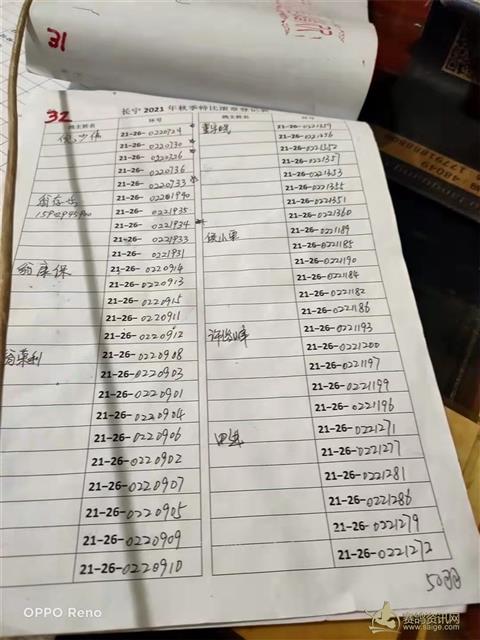 31
32
长宁 2021 年秋季特比环赛登记表
鸽主姓名 环号 鸽主姓名 环号
21-26-0220724 21-26-0221359
21-26-0220730 21-26-0221356
21-26-0220726 21-26-0221352
21-26-0220736 21-26-0221357
21-26-0220733 21-26-0221353
21-26-0221940 21-26-0221355
21-26-0221935 21-26-0221351
21-26-0221934 21-26-0221360
21-26-0221933 侯小军 21-26-0221189
21-26-0221931 21-26-0221185
翁康保 21-26-0220914 21-26-0221190
21-26-0220913 21-26-0221184
21-26-0220915 21-26-0221182
21-26-0220911 21-26-0221186
21-26-0220912 21-26-0221193
翁荣利 21-26-0220908 21-26-0221200
21-26-0220903 21-26-0221197
21-26-0220901 21-26-0221199
21-26-0220904 21-26-0221196
21-26-0220906 21-26-0221271
21-26-0220902 21-26-0221277
21-26-0220907 21-26-0221281
21-26-0220905 21-26-0221286
21-26-0220909 21-26-0221279
21-26-0220910 21-26-0221272
50羽
OPPO Reno
赛鸽资讯网
www.saige.com